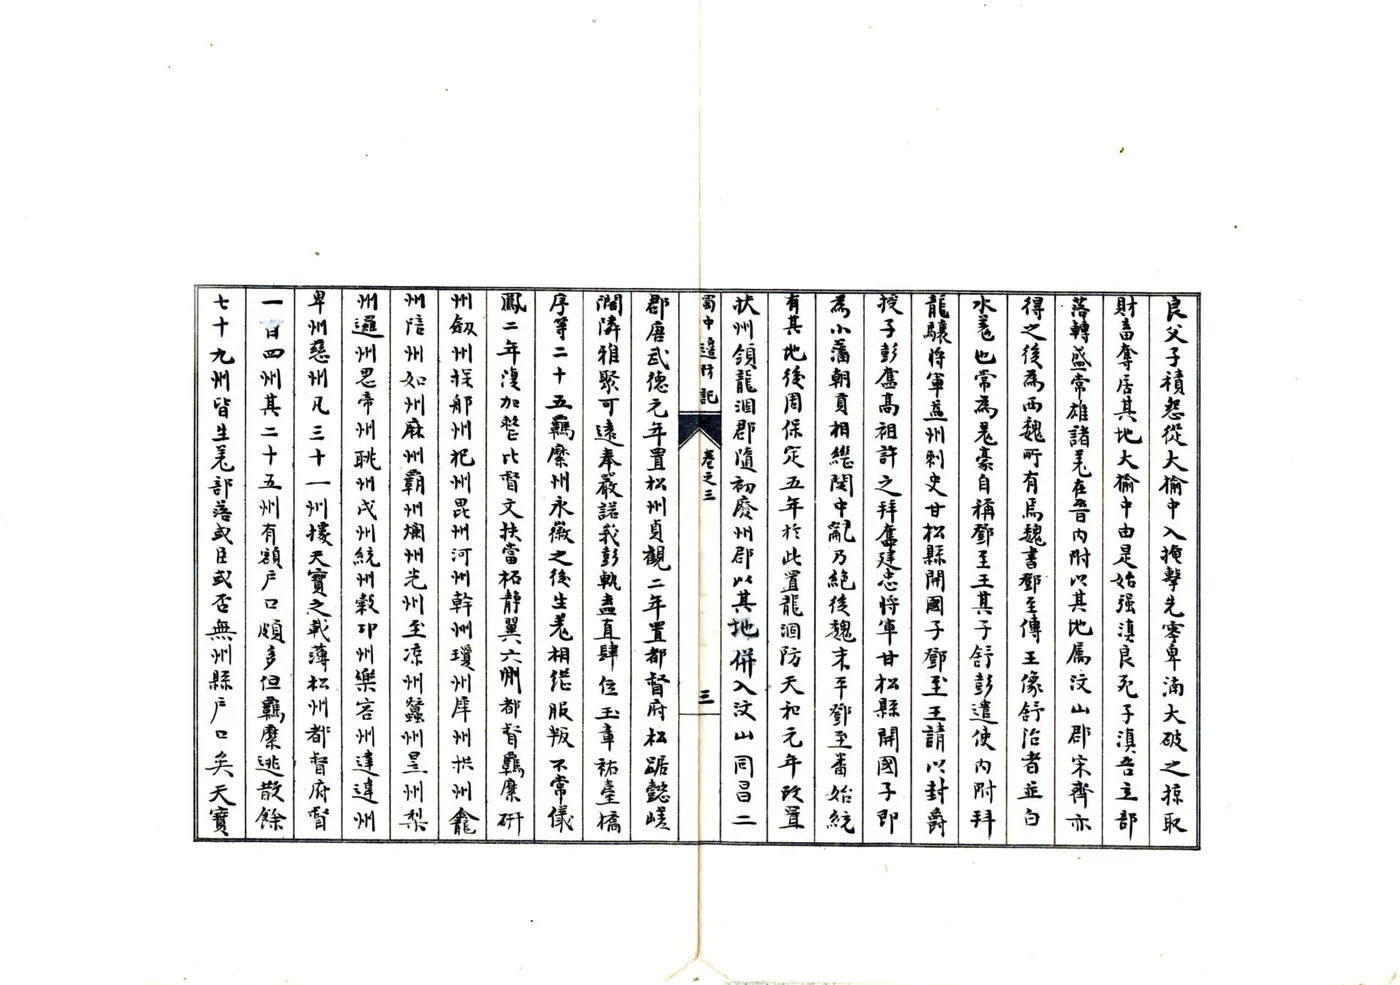 良父子積怨從大榆中入掩擊先零卑湳大破之掠取
財畜奪居其地大榆中由是始强滇良死子滇吾立部
落轉盛常雄諸羌在晉內附以其地属汶山郡宋齊亦
得之後為西魏所有焉魏書鄧至傳王像舒治者並白
水羌也常為羌豪自稱鄧至王其子舒彭遣使內附拜
龍驤將軍益州刺史甘松縣開國子鄧至王請以封爵
授子彭奮高祖許之拜奮建忠將軍甘松縣開國子即
為小藩朝貢相繼関中亂乃絕後魏末平鄧至番始統
有其地後周保定五年於此置龍涸防天和元年改置
扶州領龍涸郡隨初廢州郡以其地併入汶山同昌二
蜀中邊防記 卷之三 三
郡唐武德元年置松州貞觀二年置都督府松踞懿嵯
濶隣雅聚可遠奉嚴諾峩彭軌盍直肆位玉章祐臺橋
序等二十五羈縻州永徽之後生羌相继服叛不常儀
鳳二年復加整比督文扶當柘静翼六州都督羈縻研
州劔州探那州𣏌州毘州河州幹州瓊州犀州拱州龕
州陪州如州麻州霸州爛州光州至凉州蠶州㬢州梨
州邏州思帝州眺州戍州統州穀卭州樂客州達違州
卑州慈州凡三十一州據天寶之載薄松州都督府督
一百四州其二十五州有額户口頗多但羈縻逃散餘
七十九州皆生羌部落或臣或否無州縣户口矣天寶